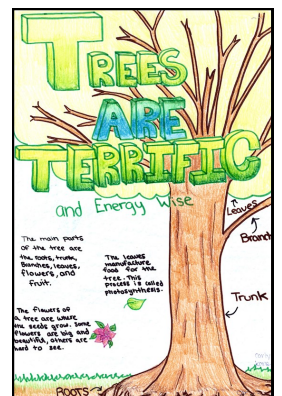 TREES
ARE
TERRIFIC
and Energy Wise
Leaves
Branch
The main parts
of the tree are
the roots, trunk,
Branches, leaves,
flowers, and
fruit.
The leaves
manufacture
food for the
tree. This
process is called
photosynthesis.
Trunk
The flowers of
a tree are where
the seeds grow. Some
flowers are big and
beautiful, others are
hard to see.
ROOTS